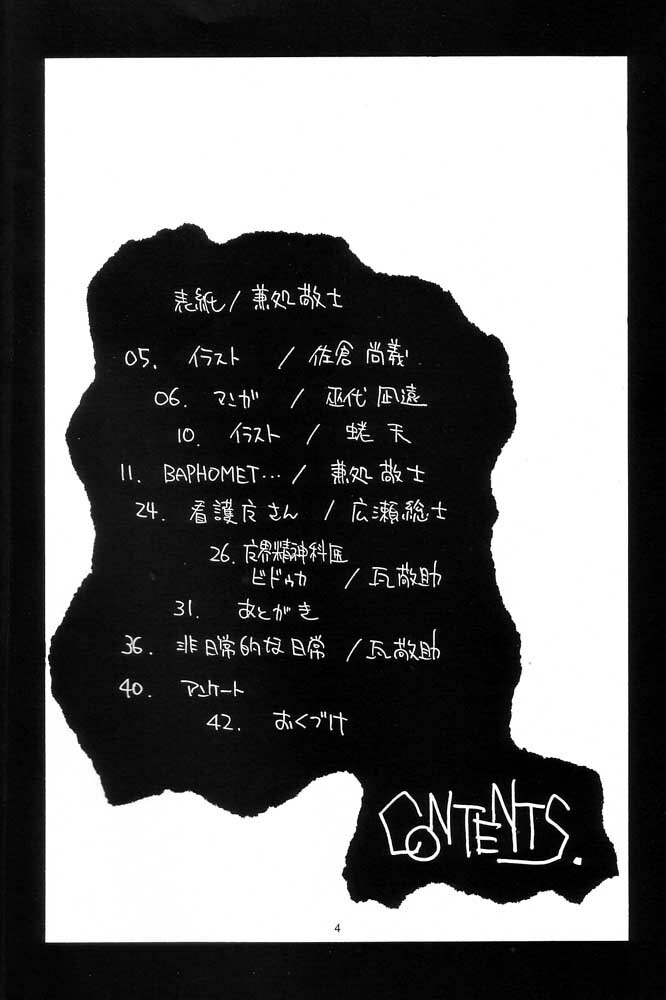 表紙/兼処敬士
05. イラスト / 佐倉尚義.
06. マンガ / 巫代凪遠
10. イラスト / 蜷天
11. BAPHOMET… / 兼処敬士
24. 看護なさん / 広瀬総士
26. 魔界精神科医
ビドゥカ / 瓦敬助
31. あとがき
36. 非日常的な日常 / 瓦敬助
40. アンケート
42. おくづけ
CONTENTS.
4